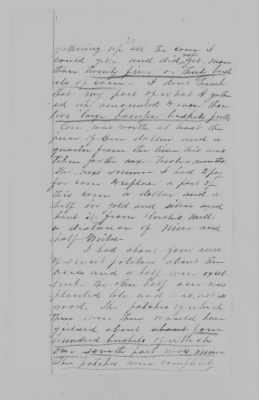 gathering up all the corn I
could get and did not get more
than twenty five or thirty bush
els of corn. I don't think
that my part of what I gather
ed up amounted to more than
two large hamper baskets full
Corn was worth at least the
price of one dollar and a
quarter from the time his was
taken for the next twelve months.
The next summer I had to pay
for corn to replace a part of
this corn a dollar and a
half in gold and silver and
haul it from Mill
a distance of Nine and
half Miles.
I had about four acres
of sweet potatoes about three
acres and a half were well
set. The other half acre was
planted late and was not so
good. The patches of which
three were then would have
yielded about four
hundred bushels of which
one seventh part was mine
The patches were completely